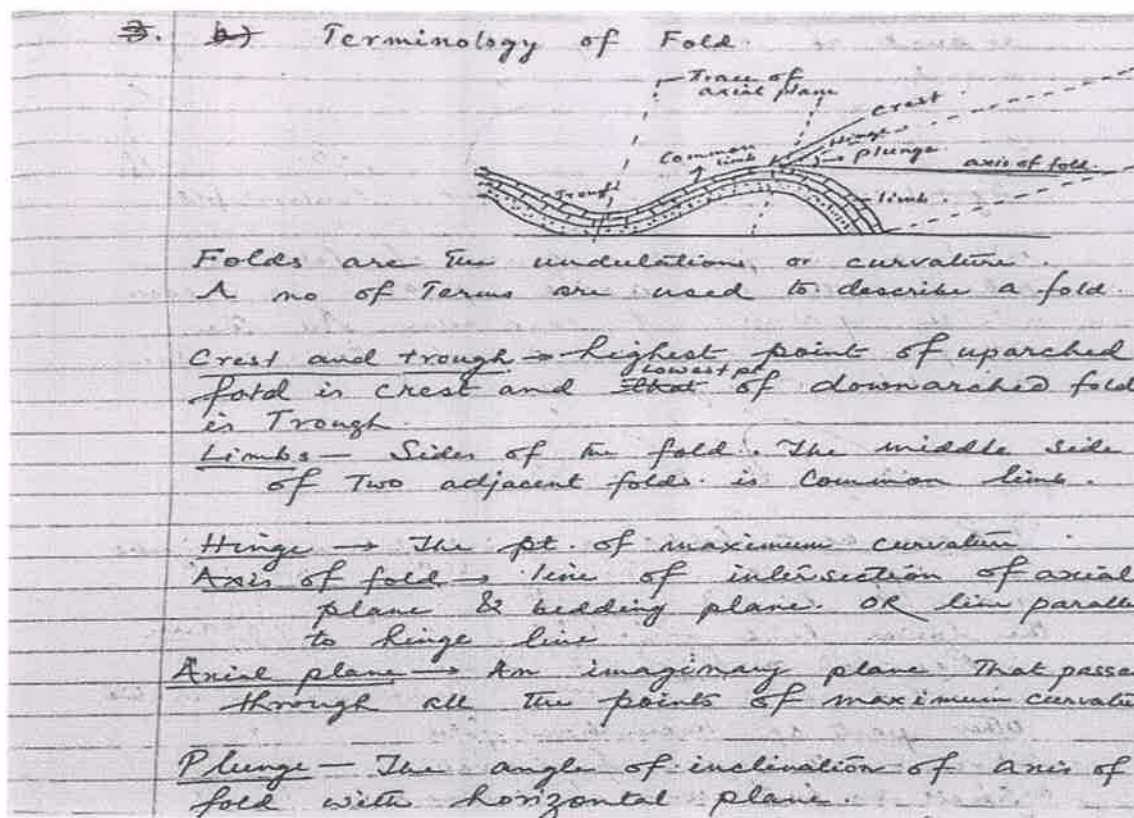 3. b) Terminology of Fold.
Trace of
axial plane
Crest
Hinge
Plunge
Common
limb
axis of fold.
Trough
limb.
Folds are the undulations, or curvature.
A no of Terms are used to describe a fold.
Crest and trough → highest point of uparched
lowest pt
fold is crest and that of downarched fold
is Trough.
Limbs – Sides of the fold. The middle side
of Two adjacent folds. is Common limb.
Hinge → The pt. of maximum curvature
Axis of fold → line of intersection of axial
plane & bedding plane. OR line paralle
to hinge line
Axial plane → An imaginary plane That passe
through all the points of maximum curvatur
Plunge – The angle of inclination of axis of
fold with horizontal plane.